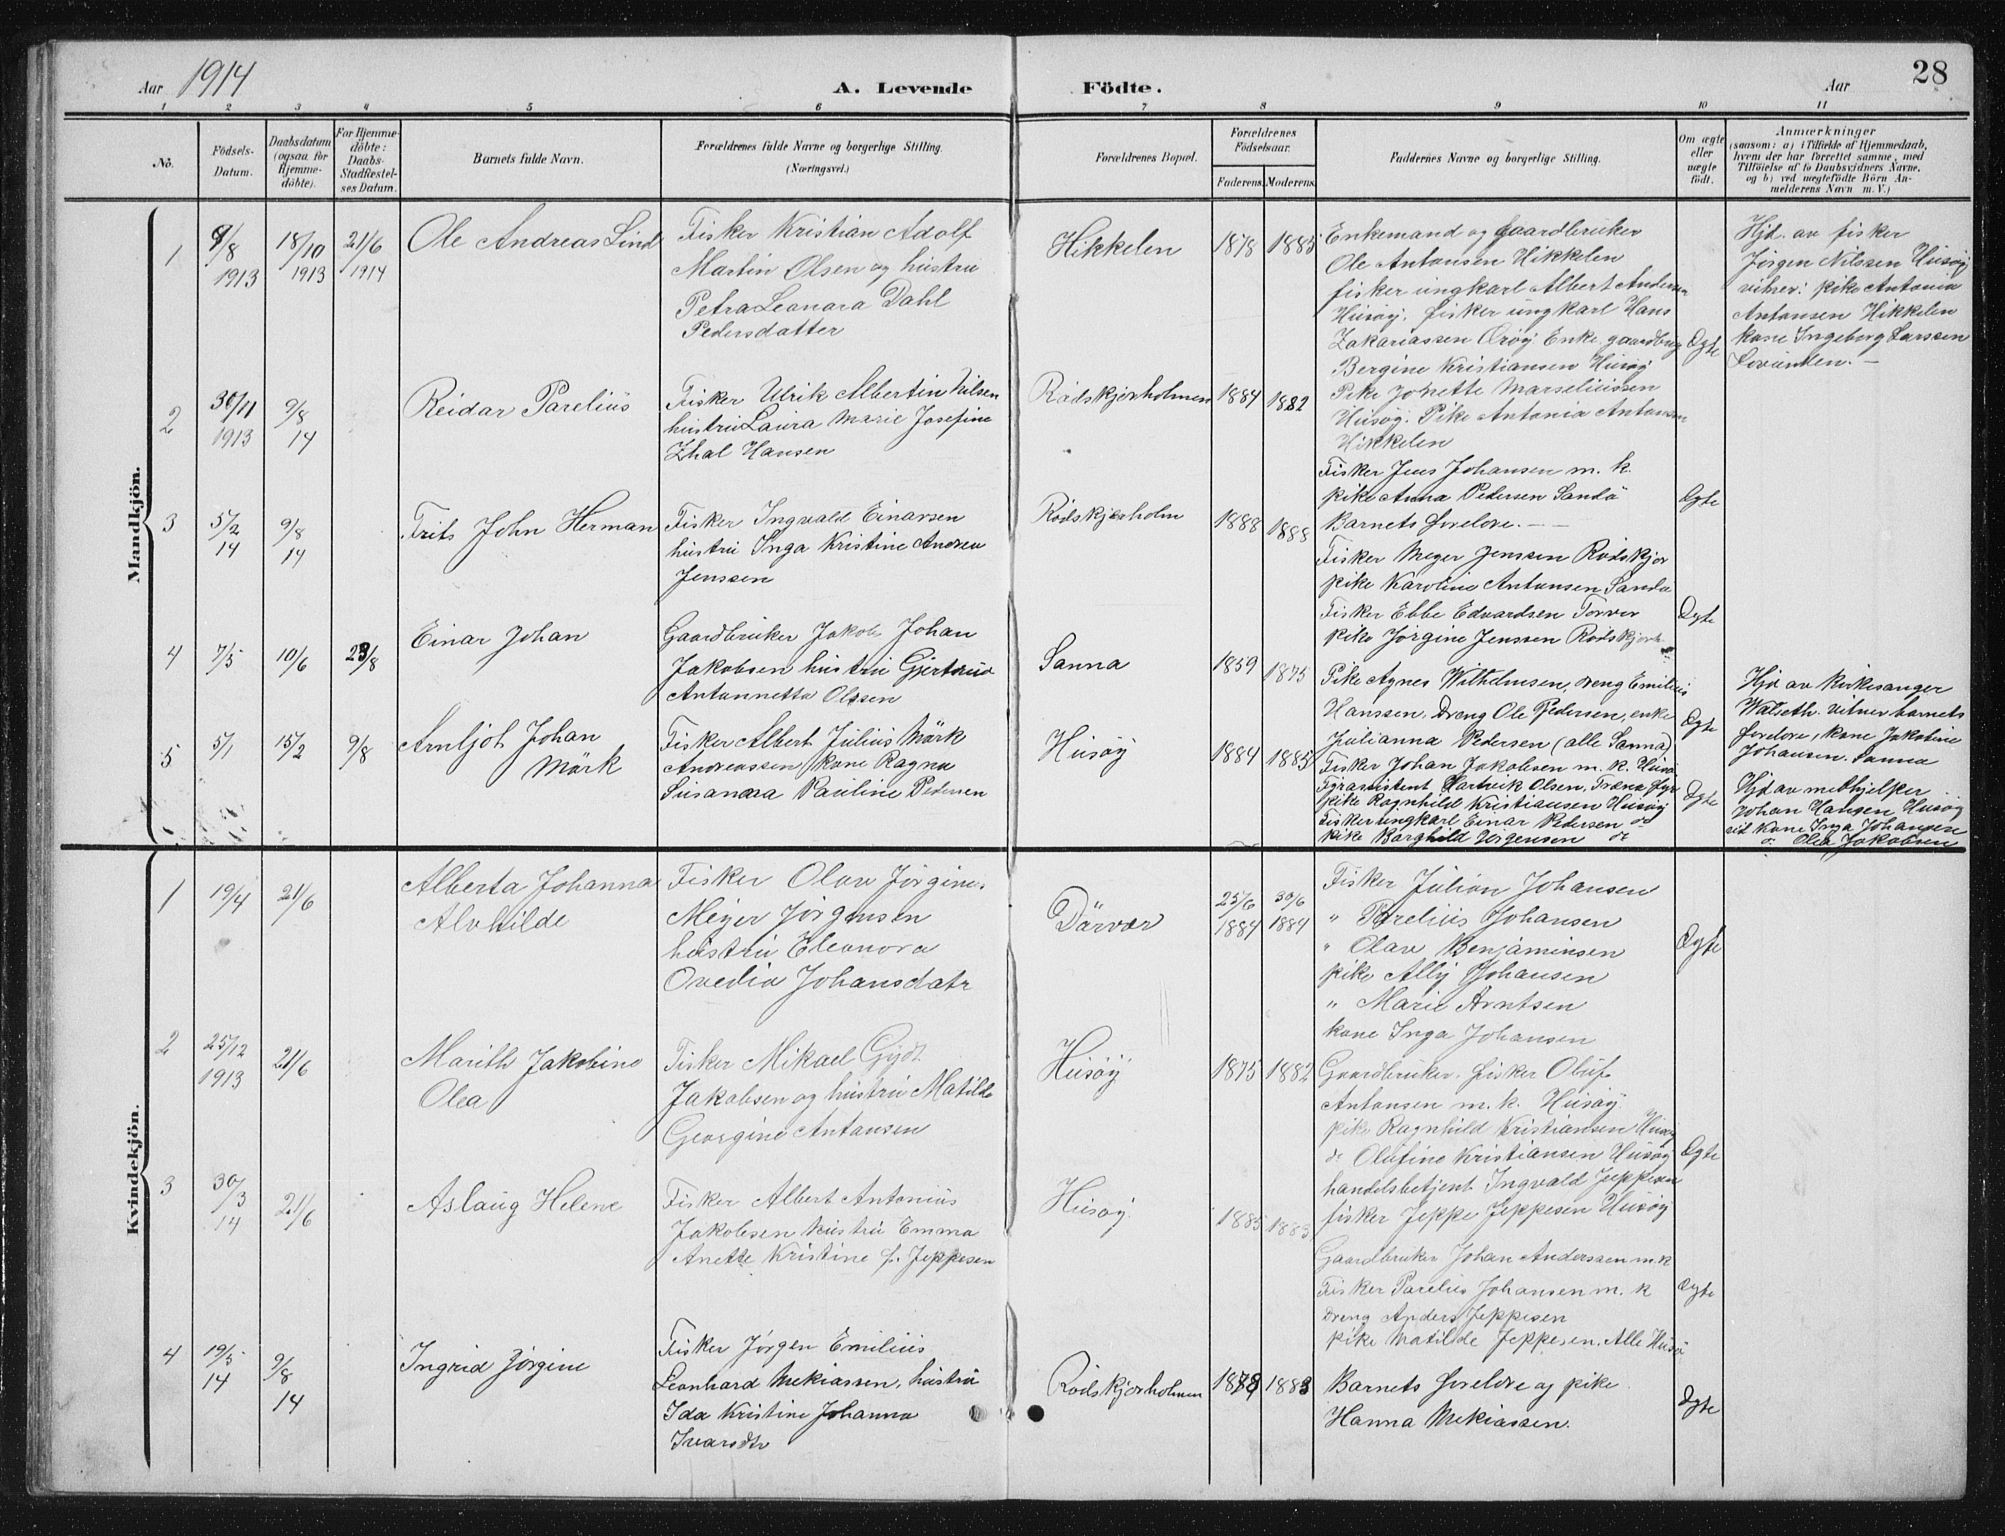 Aar 1914
A. Levende Födte.
Aar
28
1 2 3 4 5 6 7 8 9 10 11
No.
Födsels-Datum.
Daabsdatum (ogsaa for Hjemme-döbte).
For Hjemme-döbte: Daabs-Stadfæstel-ses Datum.
Barnets fulde Navn.
Forældrenes fulde Navne og borgerlige Stilling. (Næringsvei.)
Forældrenes Bopæl.
Forældrenes Födselsaar.
Faderens. Moderens.
Faddernes Navne og borgerlige Stilling.
Om ægte eller uægte födt.
Anmærkninger
(saasom: a) i Tilfælde af Hjemmedaab,
hvem der har forrettet samme, med
Tilföielse af to Daabsvidners Navne,
og b) ved uægtefödte Börn An-
melderens Navn m. V.)
Mandkjön.
1 9/8 1913 18/10 1913 21/6 1914
Ole Andreas Lind
Fisker Kristian Adolf
Martin Olsen og hustru
Petra Leonora Dahl
Pedersdatter
Hikkelen 1878 1885
Enkemand og gaardbruker
Ole Antonsen Hikkelen
fisker ungkarl Albert Andersen
Husøy. fisker ungkarl Hans
Zakariassen Orøy. Enke, gaardbrug
Bergine Kristiansen Husøy
Pike Jonette Marseliussen
Husøy. Pike Antonia Antonsen
Hikkelen
Ægte
Hjd. av fisker
Jørgen Nilssen Husøy
vitner: pike Antonia
Antonsen Hikkelen
kone Ingeborg Larssen
Lovunden. —
2 30/11 1913 9/8 14
Reidar Parelius
Fisker Ulrik Albertin Nilsen
hustru Laura Marie Josefine
Zhal Hansen
Rødskjærholmen 1884 1882
Fisker Jens Johansen m. k.
pike Anna Pedersen Sandø
Barnets forældre. —
Ægte
3 5/2 14 9/8 14
Frits John Herman
Fisker Ingvald Einarsen
hustru Inga Kristine Andrea
Jenssen
Rødskjærholm 1888 1888
Fisker Meyer Jenssen Rødskjær
pike Karoline Antonsen Sanda
Fisker Ebbe Edvardsen Torvær
pike Jørgine Jenssen Rødskjærh.
Ægte
4 7/5 10/6 23/8
Einar Johan
Gaardbruker Jakob Johan
Jakobsen hustru Gjertrud
Antonnette Olssen
Sanna 1859 1875
Pike Agnes Wilhelmsen, dreng Emilius
Hanssen. Dreng Ole Pedersen, enke
Julianna Pedersen (alle Sanna)
Ægte
Hjd av kirkesanger
Walseth. vitner barnets
forældre, kone Jakobine
Johansen. Sanna
5 5/1 15/2 9/8
Arnljot Johan
Mörk
Fisker Albert Julius Mörk
Andreassen kone Ragna
Susanna Pauline Pedersen
Husøy 1884 1885
Fisker Johan Jakobsen m. k. Husø
Fyrassistent Hartvik Olsen, Træna fyr
pike Ragnhild Kristiansen Husøy
Fisker ungkarl Einar Pedersen do
pike Borghild Jørgensen do
Ægte
Hjd av medhjelper
Johan Hansen Husøy
vid kone Inga Johansen
do Olea Jakobsen
Kvindekjön.
1 19/4 21/6
Alberta Johanna
Alvhilde
Fisker Olav Jørgines
Meyer Jørgensen
hustru Eleonora
Ovedia Johansdatr
Dørvær 25/6 1884 30/6 1889
Fisker Julian Johansen
" Parelius Johansen
" Olav Benjaminsen
pike Ally Johansen
" Marie Arntsen
kone Inga Johansen
Ægte
2 25/12 1913 21/6
Marith Jakobine
Olea
Fisker Mikael Gjøt
Jakobsen og hustru Matilde
Georgine Antonsen
Husøy 1875 1882
Gaardbruker, fisker Oluf
Antonsen m. k. Husøy
pike Ragnhild Kristiansen Husøy
do Olufine Kristiansen Husøy
handelsbetjent Ingvald Jeppesen
fisker Jeppe Jeppesen Husøy
Ægte
3 30/3 14 21/6
Aslaug Helene
Fisker Albert Antonius
Jakobsen hustru Emma
Anette Kristine f. Jeppesen
Husøy 1885 1883
Gaardbruker Johan Anderssen m. k
Fisker Parelius Johansen m. k
Dreng Anders Jeppesen
pike Matilde Jeppesen. Alle Husø
Ægte
4 19/5 14 9/8 14
Ingrid Jørgine
Fisker Jørgen Emilius
Leonhard Mekiassen, hustru
Ida Kristine Johanna
Ivarsdtr
Rødskjærholmen 1878 1883
Barnets forældre og pike
Hanna Mekiassen.
Ægte